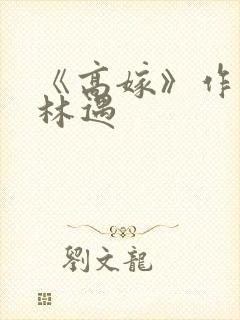 《高嫁》作
林遇
劉文龍